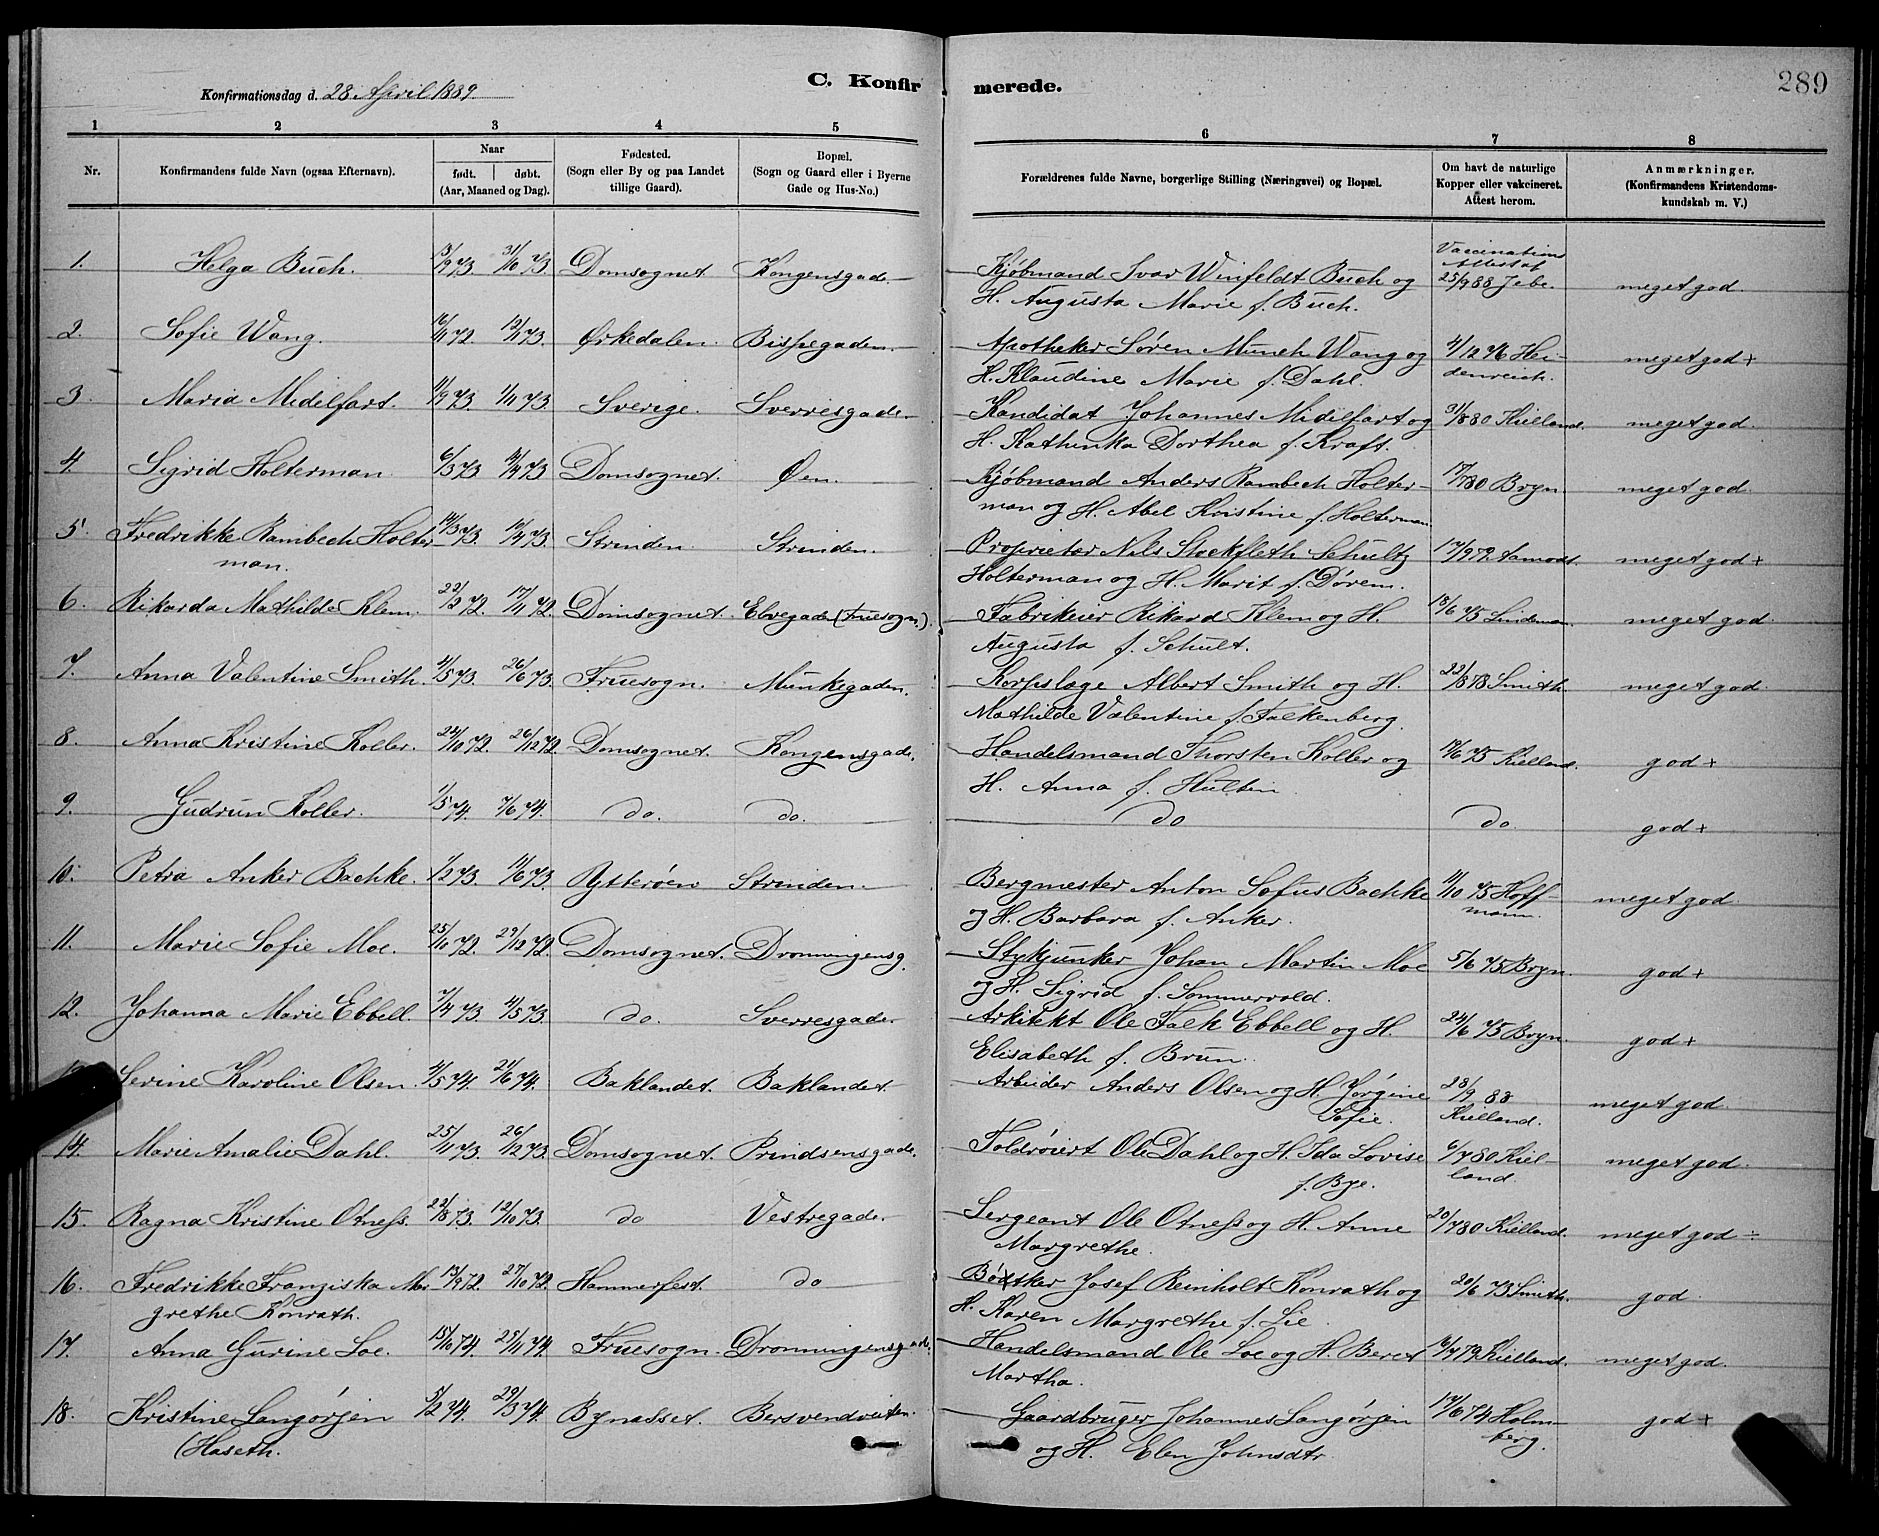 C. Konfirmerede. 289
Konfirmationsdag d. 28 April 1889.
1 2 3 4 5 6 7 8
Nr. | Konfirmandens fulde Navn (ogsaa Efternavn). | Naar født. | døbt. (Aar, Maaned og Dag). | Fødested. (Sogn eller By og paa Landet tillige Gaard). | Bopæl. (Sogn og Gaard eller i Byerne Gade og Hus-No.) | Forældrenes fulde Navne, borgerlige Stilling (Næringsvei) og Bopæl. | Om havt de naturlige Kopper eller vakcineret. Attest herom. | Anmærkninger. (Konfirmandens Kristendomskundskab m. V.)
1. Helga Buch. 3/9 73. 31/10 73. Domsognet. Kongensgade. Kjøbmand Ivar Winfeldt Buch og H. Augusta Marie f. Buch. Vaccinations Attest af 25/9 88 meget god
2. Sofie Wang. 16/11 72. 12/1 73. Ørkedalen. Bispegaden. Apotheker Søren Munch Wang og H. Klaudine Marie f. Dahl. 4/12 76 Heidenreich. meget god +
3. Maria Midelfart. 11/9 73. 1/11 73. Sverige. Sverresgade. Kandidat Johannes Midelfart og H. Kathinka Dorthea f. Kraft. 31/8 80 Kielland. meget god.
4. Sigrid Holterman 6/3 73. 14/4 73. Domsognet. Øen. Kjøbmand Anders Rambech Holterman og H. Abel Kristine f. Holterman 17/7 80 Bryn. meget god.
5. Fredrikke Rambech Holterman. 14/3 73. 14/4 73. Strinden. Strinden. Proprietær Nils Stockfleth Schultz Holterman og H. Marit f. Dørem. 17/9 79. Aamodt. meget god +
6. Rikarda Mathilde Klem. 22/2 72. 17/11 72. Domsognet. Elvegade (Fruesogn.) Fabrikeier Rikard Klem og H. Augusta f. Schult. 18/6 75 Lindeman. meget god.
7. Anna Valentine Smith. 4/5 73. 26/6 73. Fruesogn. Munkegaden. Korpslæge Albert Smith og H. Mathilde Valentine f. Falkenberg. 22/8 78 Smith. meget god.
8. Anna Kristine Koller. 24/10 72. 26/12 72. Domsognet. Kongensgade. Handelsmand Thorsten Koller og H. Anna f. Hultin. 19/6 75 Kielland. god +
9. Gudrun Koller. 1/5 74. 7/6 74. do. do. do do god +
10. Petra Anker Bachke. 1/2 73. 11/6 73. Ytterøen Strinden. Bergmester Anton Sofus Bachke og H. Barbara f. Anker. 11/10 75 Hoffmann. meget god
11. Marie Sofie Moe. 25/10 72. 29/12 72. Domsognet. Dronningensg. Stykjunker Johan Martin Moe og H. Sigrid f. Sommervold. 5/6 75 Bryn. god +
12. Johanna Marie Ebbell. 7/4 73. 4/5 73. do. Sverresgade. Arkitekt Ole Falk Ebbell og H. Elisabeth f. Brun. 24/6 75 Bryn. god +
Serine Karoline Olsen. 4/5 74. 21/6 74. Baklandet. Baklandet. Arbeider Anders Olsen og H. Jørgine Sofie. 28/9 88 Kielland. meget god.
14. Marie Amalie Dahl. 25/11 73. 26/12 73. Domsognet. Prindsensgade. Toldroiert Ole Dahl og H. Ida Lovise f. Bye. 6/7 80 Kielland. meget god.
15. Ragna Kristine Otness. 22/8 73. 12/10 73. do Vestregade. Sergeant Ole Otness og H. Anne Margrethe. 20/7 80 Kielland. meget god ÷
16. Fredrikke Franziska Margrethe Konrath. 13/9 72. 27/10 72. Hammerfest. do Bødker Josef Reinholt Konrath og H. Karen Margrethe f. Lie. 20/6 73 Smith. god.
17. Anna Gurine Loe. 15/10 74. 29/11 74. Fruesogn. Dronningensgade. Handelsmand Ole Loe og H. Beret Martha. 16/7 79 Kielland. meget god.
18. Kristine Langørjen (Haseth. 5/2 74. 29/3 74. Bynæsset. Bersvendveiten. Gaardbruger Johannes Langørjen og H. Elen Johnsdtr. 14/6 74 Holmberg. god +